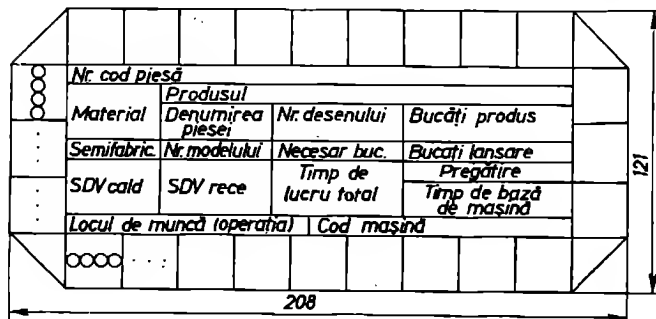 Nr. cod piesă
Produsul
Material
Denumirea piesei
Nr. desenului
Bucăți produs
Semifabric.
Nr. modelului
Necesar buc.
Bucăți lansare
SDV cald
SDV rece
Timp de lucru total
Pregătire
Timp de bază de mașină
Locul de muncă (operația)
Cod mașină
208
121